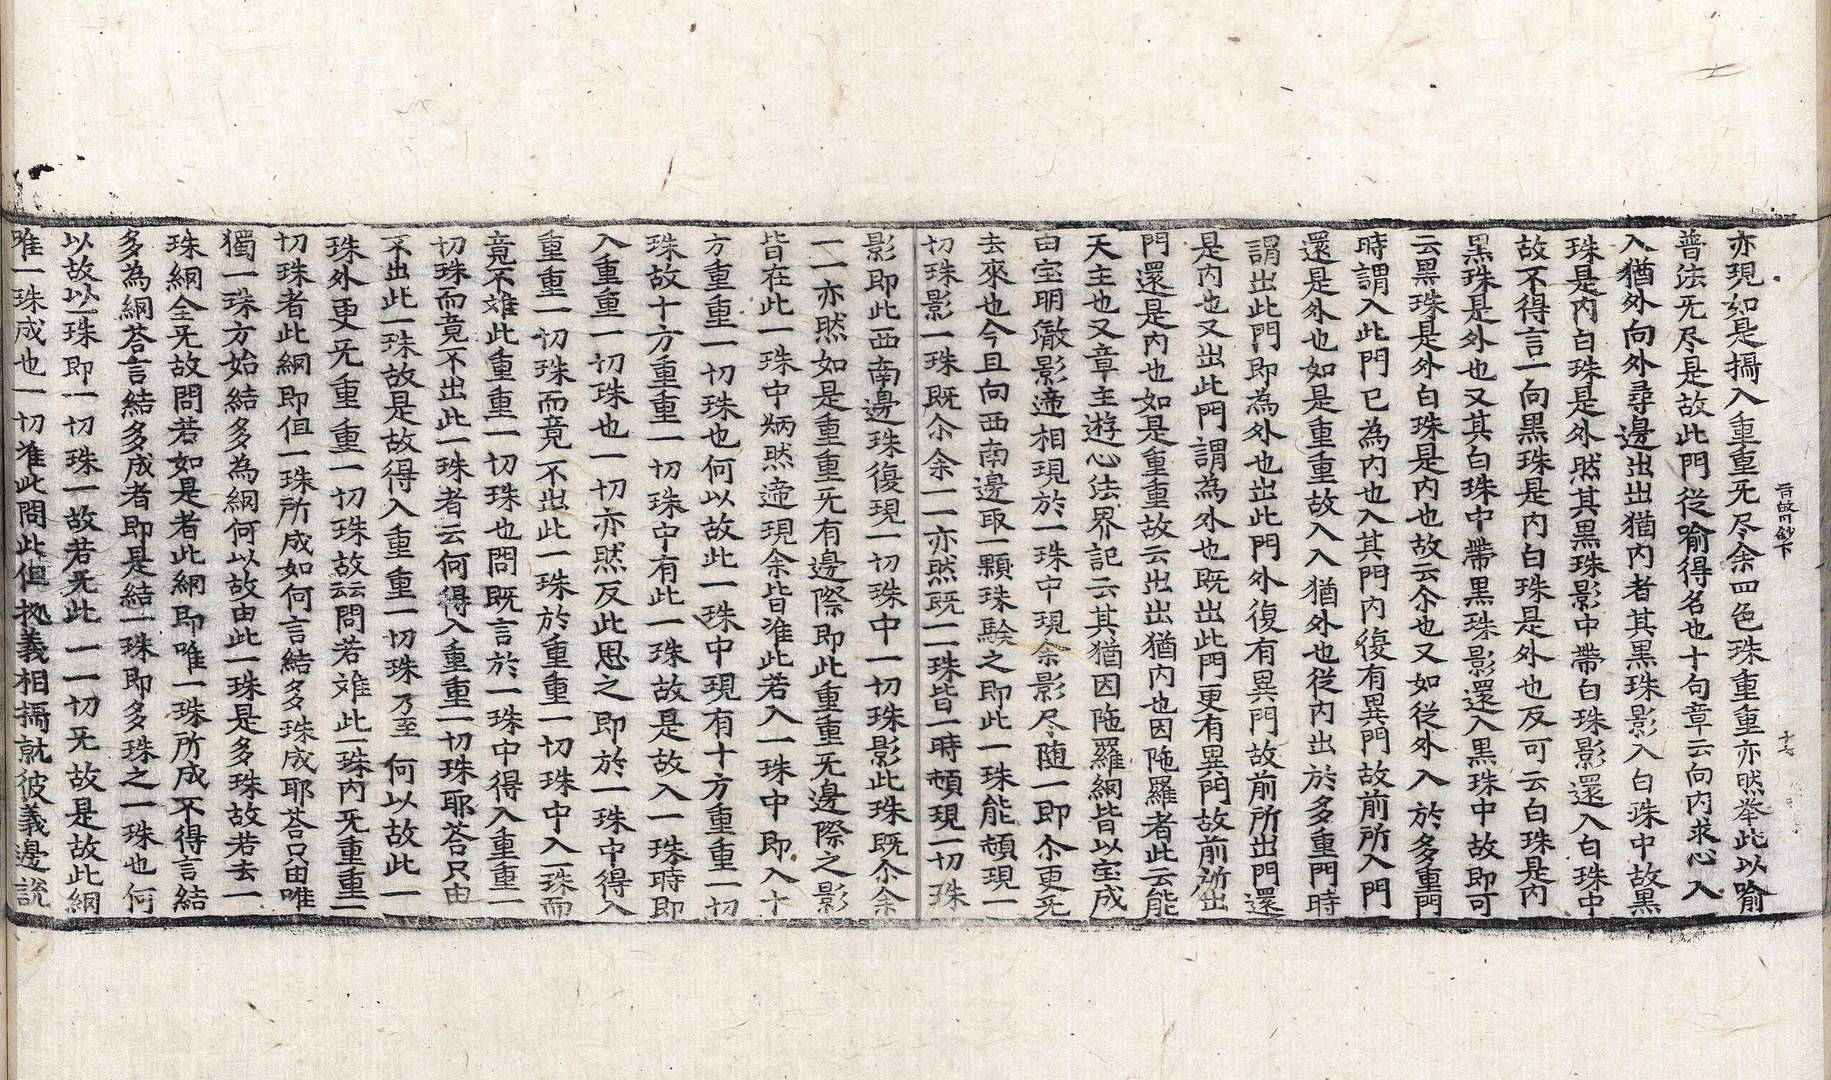 亦現如是攝入重重无尽余四色珠重重亦然举此以喻
普法无尽是故此門從喻得名也十句章云向內求心入
入猶外向外尋邊出出猶內者其黑珠影入白珠中故黑
珠是內白珠是外然其黑珠影中帶白珠影還入白珠中
故不得言一向黑珠是內白珠是外也反可云白珠是內
黑珠是外也又其白珠中帶黑珠影還入黑珠中故即可
云黑珠是外白珠是內也故云尒也又如從外入於多重門
時謂入此門已為內也入其門內復有異門故前所入門
還是外也如是重重故入入猶外也從內出於多重門時
謂出此門即為外也出此門外復有異門故前所出門還
是內也又出此門謂為外也既出此門更有異門故前所出
門還是內也如是重重故云出出猶內也因陁羅者此云能
天主也又章主遊心法界記云其猶因陁羅網皆以宝成
由宝明徹影遞相現於一珠中現余影尽随一即尒更无
去來也今且向西南邊取一顆珠驗之即此一珠能頓現一
切珠影一珠既尒余一一亦然既一一珠皆一時頓現一切珠
影即此西南邊珠復現一切珠中一切珠影此珠既尒余
一一亦然如是重重无有邊際即此重重无邊際之影
皆在此一珠中炳然遞現余皆准此若入一珠中即入十
方重重一切珠也何以故此一珠中現有十方重重一切
珠故十方重重一切珠中有此一珠故是故入一珠時即
入重重一切珠也一切亦然反此思之即於一珠中得入
重重一切珠而竟不出此一珠於重重一切珠中入一珠而
竟不難此重重一切珠也問既言於一珠中得入重重一
切珠而竟不出此一珠者云何得入重重一切珠耶荅只由
不出此一珠故是故得入重重一切珠乃至何以故此一
珠外更无重重一切珠故云云問若难此一珠內无重重一
切珠者此網即但一珠所成如何言結多珠成耶荅只由唯
獨一珠方始結多為網何以故由此一珠是多珠故若去一
珠網全无故問若如是者此網即唯一珠所成不得言結
多為網荅言結多成者即是結一珠即多珠之一珠也何
以故以一珠即一切珠一故若无此一一切无故是故此網
唯一珠成也一切准此問此但拠義相攝就彼義邊說